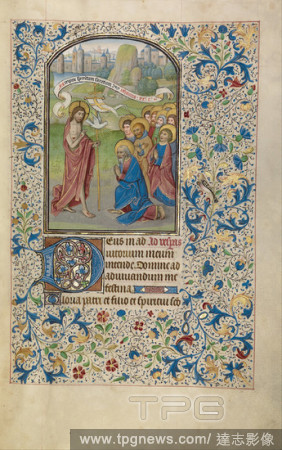 Deus in ad Ad vesp̄as
iutorium meum
intende. Domine ad
adiuuandum me
festina.
Gloria patri et filio et spiritui sc̄o
TPG
www.tpgnews.com/達志影像